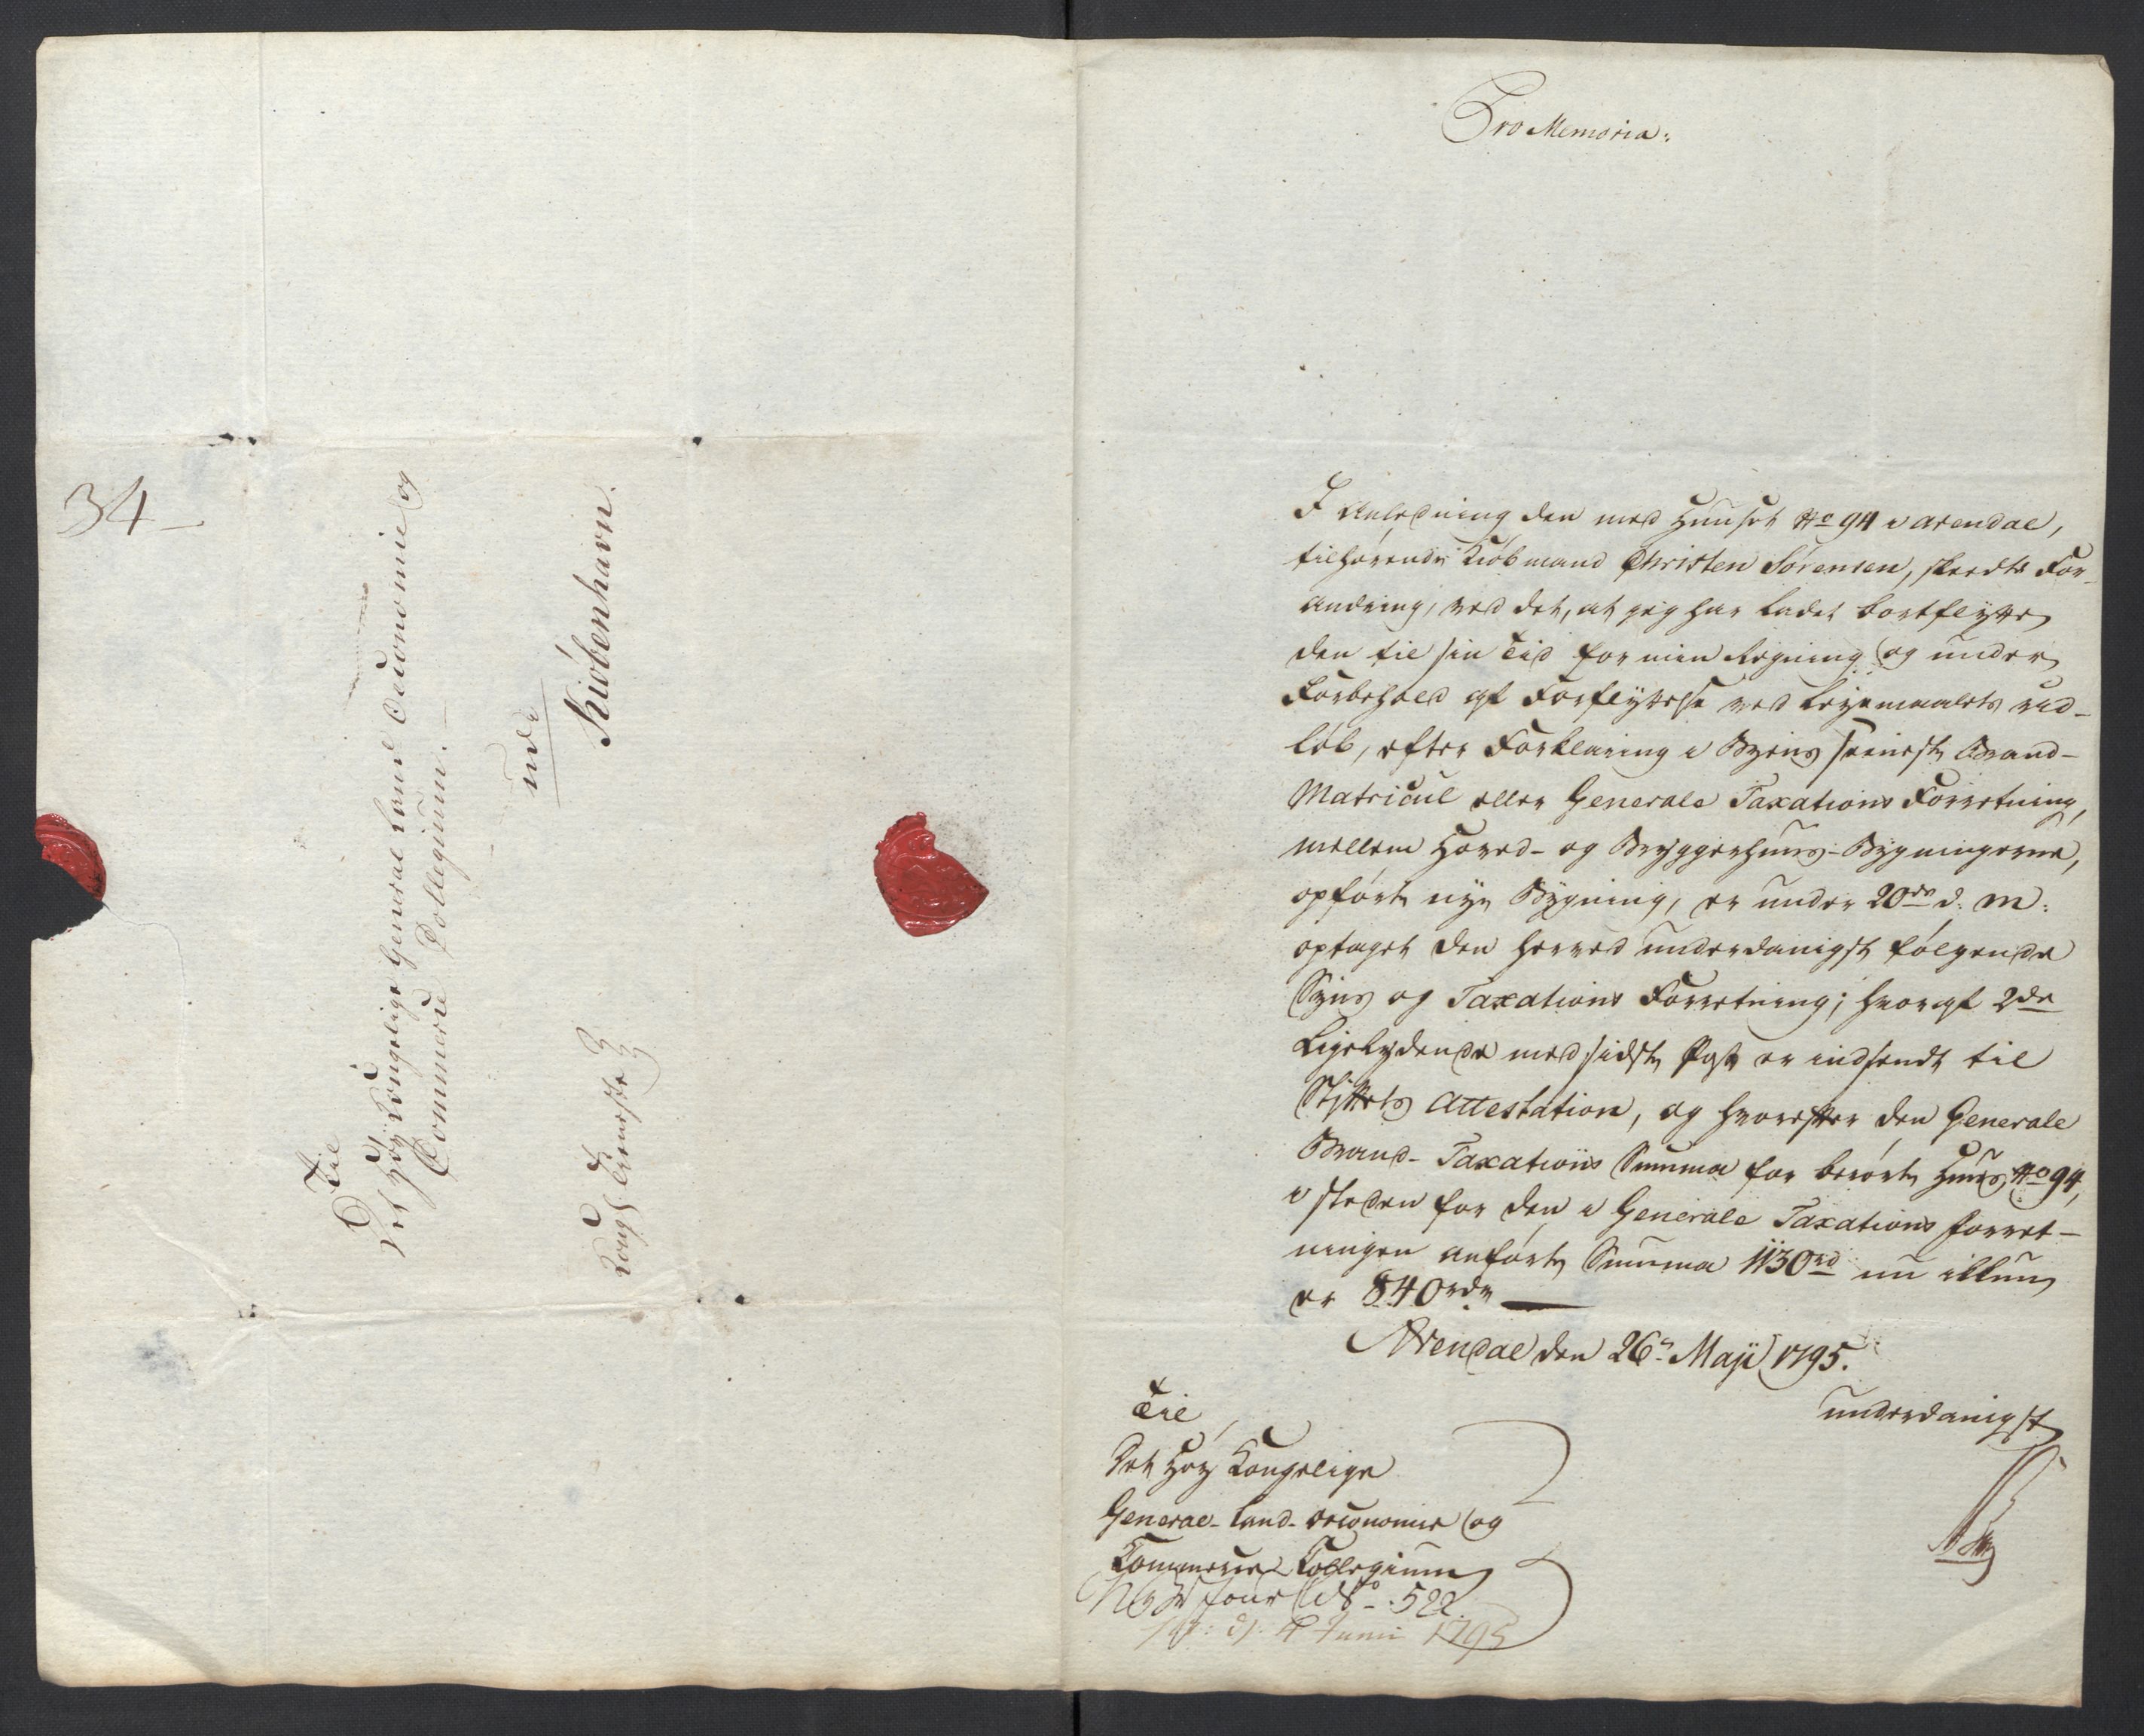 34 –
Til
Det Høy Kongelige General Land Oeconomie og
Commerce Collegium. –
udi
Kiøbenhavn.
Kongl Tieneste
Pro Memoria:
I Anledning den med Huuset No 94 i Arendal,
tilhørende Kiøbmand Christen Sørensen, skeedte For-
andring, ved det, at jeg har ladet bortflytte
den til sin Tid for min Regning og under
Forbehold af Forflyttelse ved Leyemaalets Ud-
løb, efter Forklaring i Byens seeneste Brand-
Matricul eller Generale Taxations Forretning,
mellem Hoved- og Bryggerhuus-Bygningerne,
opførte nye Bygning, er under 20de d. M:
optaget den herved underdanigst følgende
Syns og Taxations Forretning; hvoraf 2de
Ligelydende med sidste Post er indsendt til
Stiftets Attestation, og hvorefter den Generale
Brand- Taxations Summa for berørte Huus No 94,
i steden for den i Generale Taxations Forret-
ningen anførte Summa 1130rd nu ikkun
er 840rdr
Arendal den 26de Maji 1795.
underdanigst
Til
Det Høy Kongelige
General-Land-Oeconomie og
Commerce Collegium
Jour No 522.
4 Junii 1795